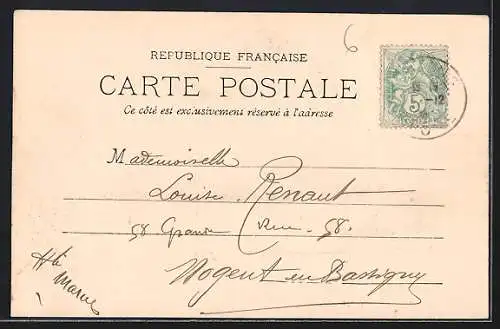 6
REPUBLIQUE FRANÇAISE
CARTE POSTALE
Ce côté est exclusivement réservé à l'adresse
5
-12
Mademoiselle
Louise Renaut
58 Grande Rue 58.
Nogent en Bassigny
Hte
Marne